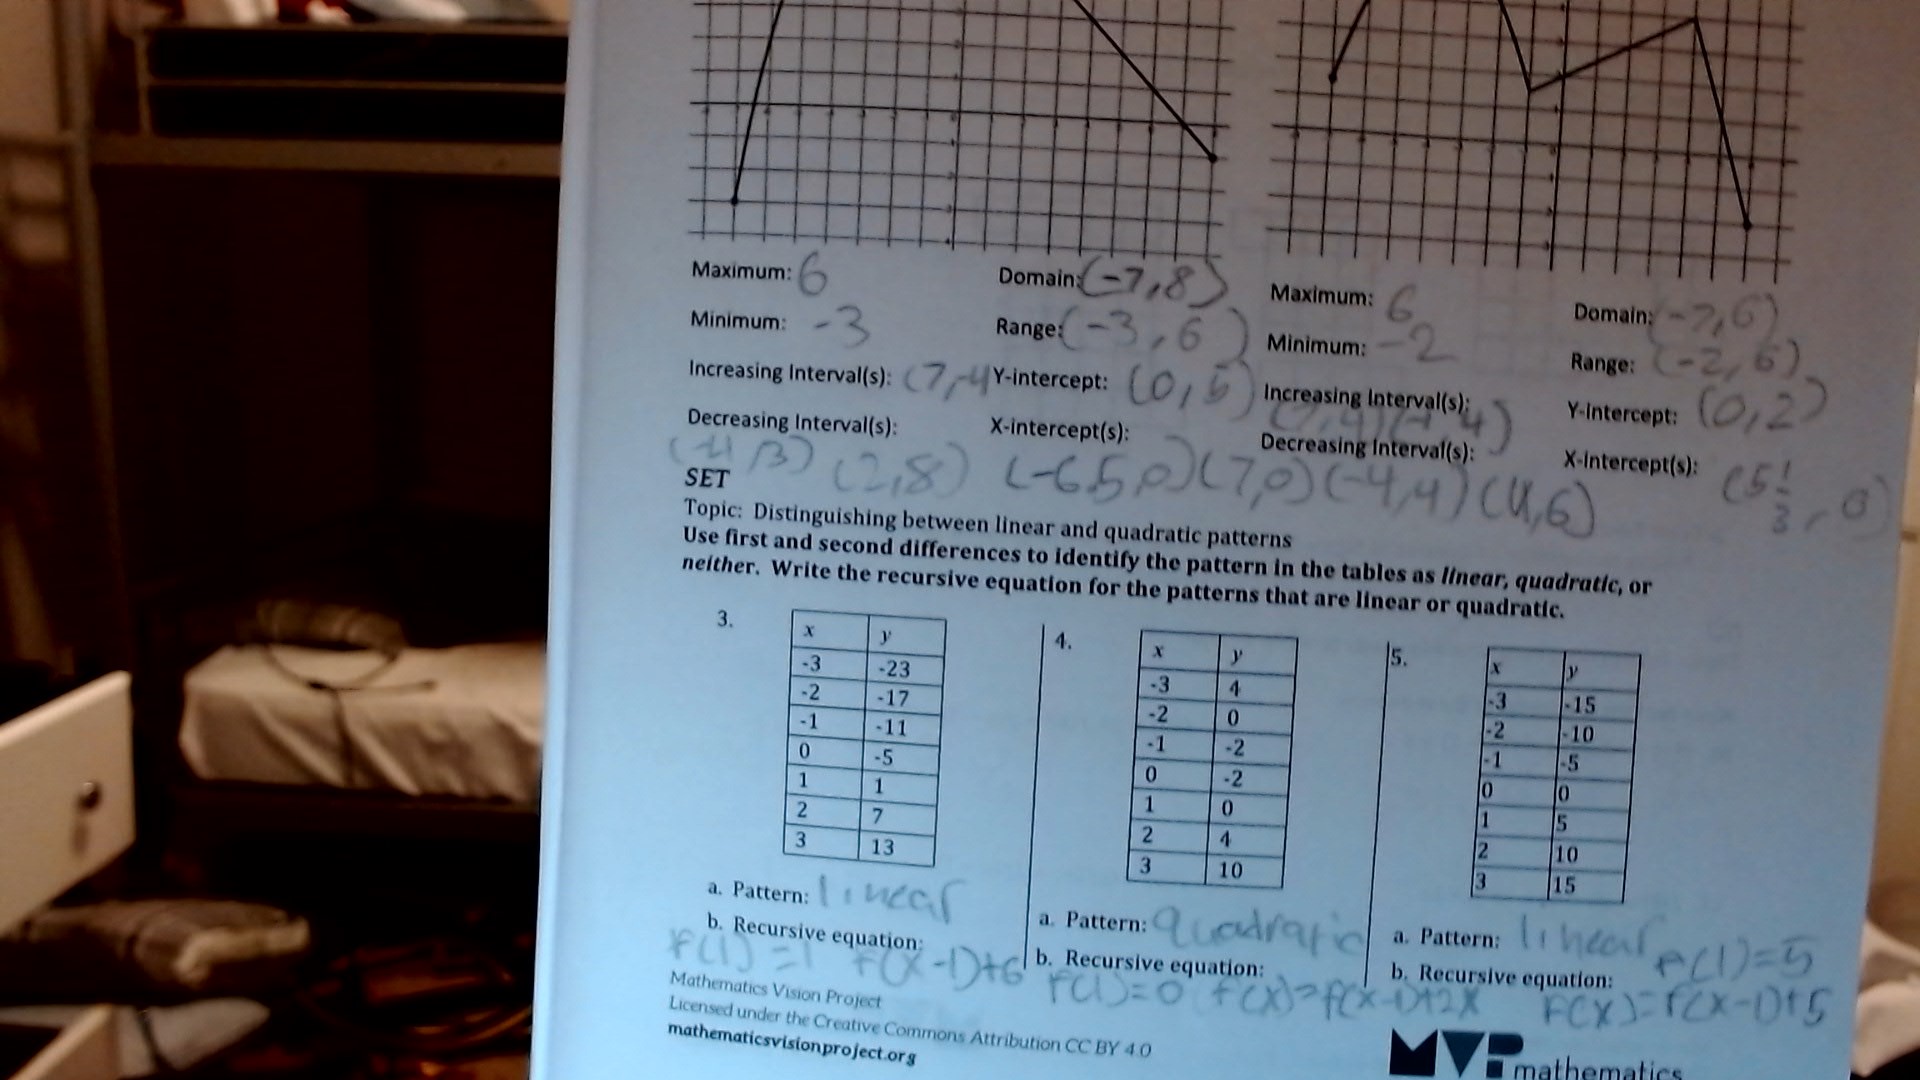 Maximum: 6 Domain: (-7,8)
Minimum: -3 Range: (-3,6)
Increasing Interval(s): (7,-4 Y-intercept: (0,5)
Decreasing Interval(s): X-intercept(s):
(2,8) (-6.5,0) (7,0)
Maximum: 6 Domain: (-7,6)
Minimum: -2 Range: (-2,6)
Increasing Interval(s): Y-intercept: (0,2)
Decreasing Interval(s): X-intercept(s): (5 1/3, 0)
(-4,4) (4,6)
SET
Topic: Distinguishing between linear and quadratic patterns
Use first and second differences to identify the pattern in the tables as linear, quadratic, or
neither. Write the recursive equation for the patterns that are linear or quadratic.
3.
x y
-3 -23
-2 -17
-1 -11
0 -5
1 1
2 7
3 13
a. Pattern: linear
b. Recursive equation:
f(1)=1 f(x-1)+6
4.
x y
-3 4
-2 0
-1 -2
0 -2
1 0
2 4
3 10
a. Pattern: quadratic
b. Recursive equation:
f(1)=0 f(x)=f(x-1)+2x
5.
x y
-3 -15
-2 -10
-1 -5
0 0
1 5
2 10
3 15
a. Pattern: linear f(1)=5
b. Recursive equation:
f(x)=f(x-1)+5
Mathematics Vision Project
Licensed under the Creative Commons Attribution CC BY 4.0
mathematicsvisionproject.org
MVP mathematics